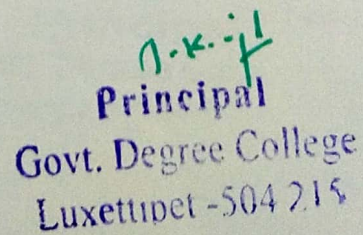 Principal
Govt. Degree College
Luxettipet -504 215